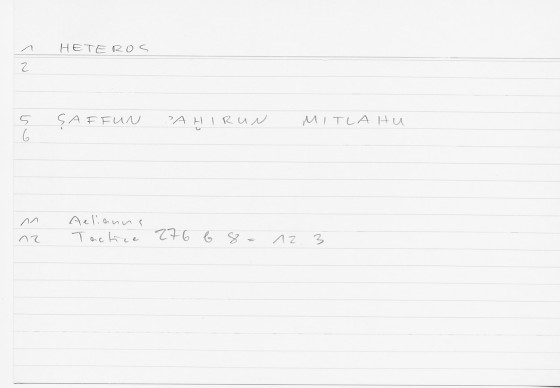 1 HETEROS
2
5 ṢAFFUN ʾAḪIRUN MITLAHU
6
11 Aelianus
12 Tactica 276 6 8 - 12 3